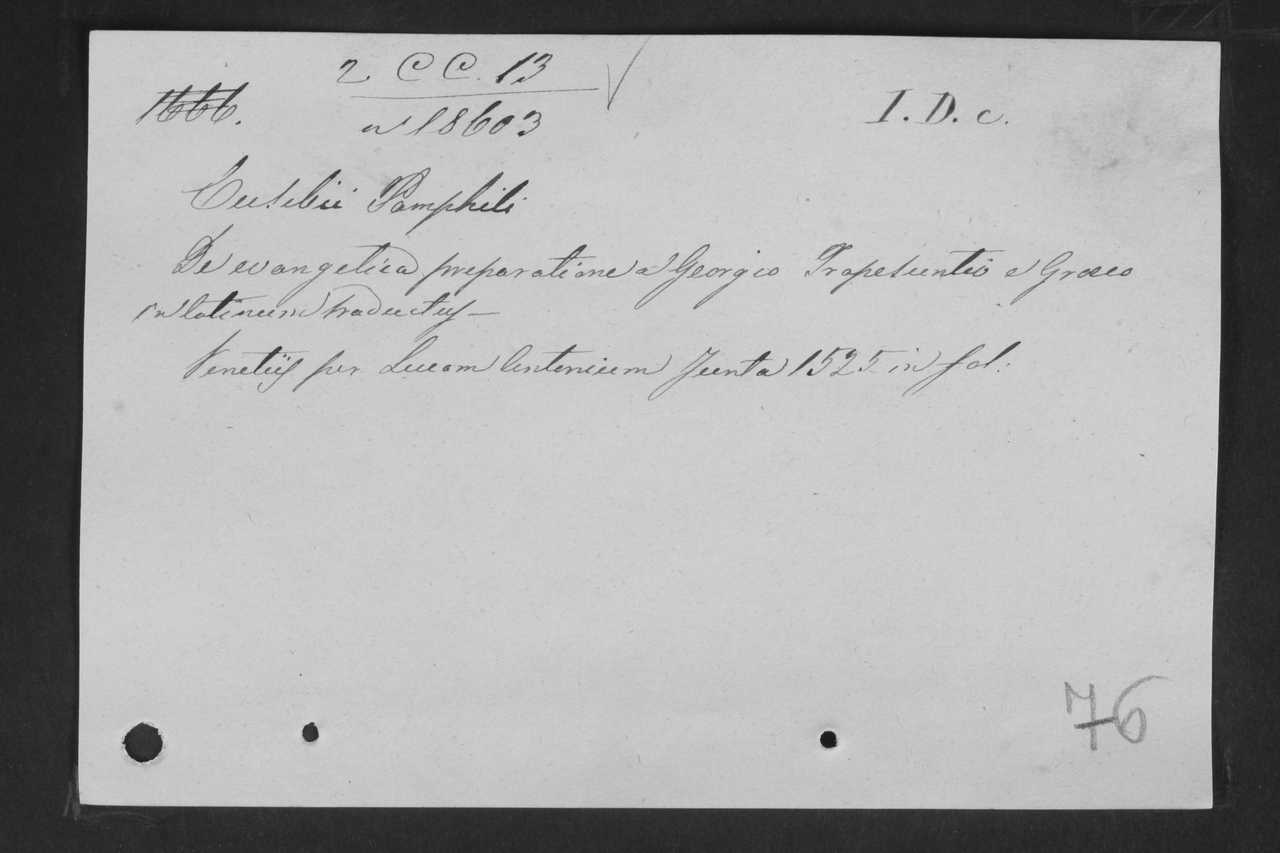 2 CC. 13
1666.
n 18603
I. D. c.
Eusebii Pamphili
De evangelica preparatione a Georgio Trapesuntio e Graeco
in latinum traductus —
Venetiis per Lucam Antonium Junta 1525 in fol.
76